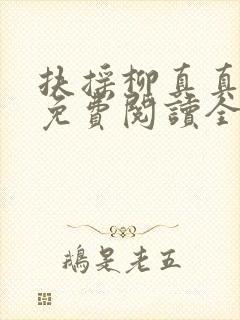 扶採柳真真
免費閱讀全
鵝是老五